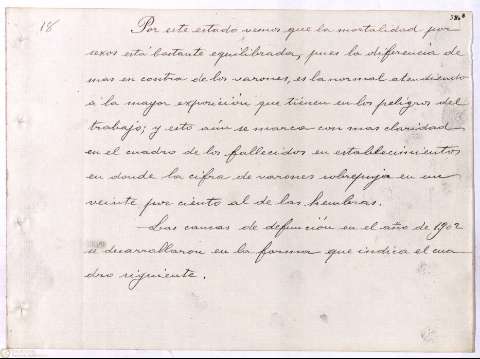 18
Por este estado vemos que la mortalidad por
sexos está bastante equilibrada, pues la diferencia de
mas en contra de los varones, es la normal atendiendo
á la mayor exposición que tienen en los peligros del
trabajo; y esto aún se marca con mas claridad
en el cuadro de los fallecidos en establecimientos
en donde la cifra de varones sobrepuja en un
veinte por ciento al de las hembras.
—Las causas de defunción en el año de 1902
se desarrollaron en la forma que indica el cua
dro siguiente.